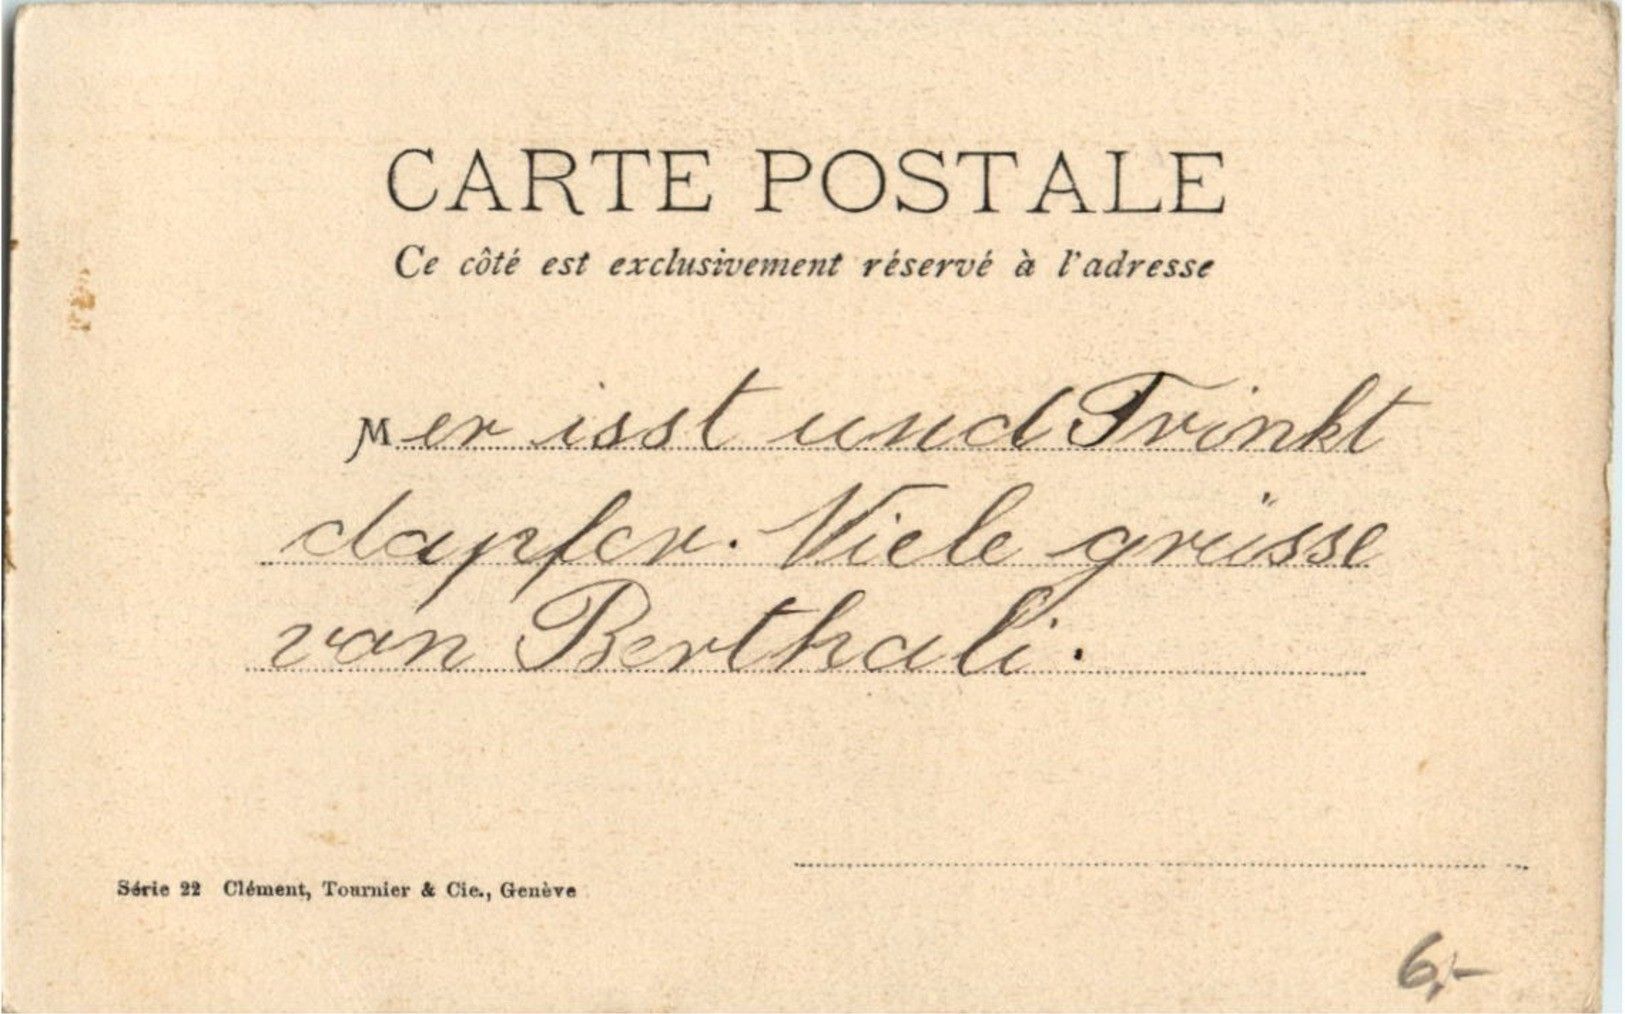 CARTE POSTALE
Ce côté est exclusivement réservé à l'adresse
Mer isst und Trinkt
dapfer. Viele grüsse
van Berthali.
Série 22 Clément, Tournier & Cie., Genève
6,-